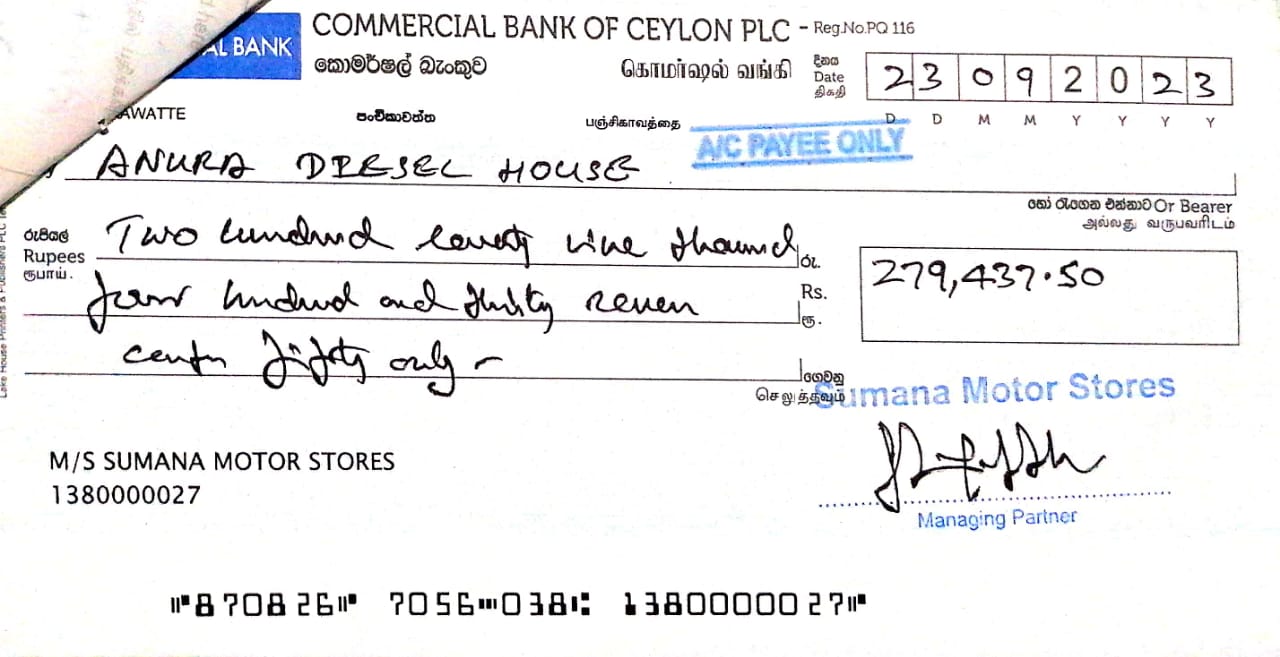 AL BANK
COMMERCIAL BANK OF CEYLON PLC - Reg.No.PQ 116
කොමර්ෂල් බැංකුව கொமர்ஷல் வங்கி
දිනය
Date
திகதி
2 3 0 9 2 0 2 3
D D M M Y Y Y Y
AWATTE පංචිකාවත්ත பஞ்சிகாவத்தை
A/C PAYEE ONLY
ANURA DIESEL HOUSE
හෝ රැගෙන එන්නාට Or Bearer
அல்லது வருபவரிடம்
රුපියල්
Rupees
ரூபாய்.
Two hundred seventy nine thousand
four hundred and thirty seven
cents fifty only -
රු.
Rs.
ரூ.
279,437.50
ගෙවනු
செலுத்தவும்
Sumana Motor Stores
Managing Partner
M/S SUMANA MOTOR STORES
1380000027
⑈870826⑈ 7056⑉038⑆ 1380000027⑈
Lake House Printers & Publishers PLC